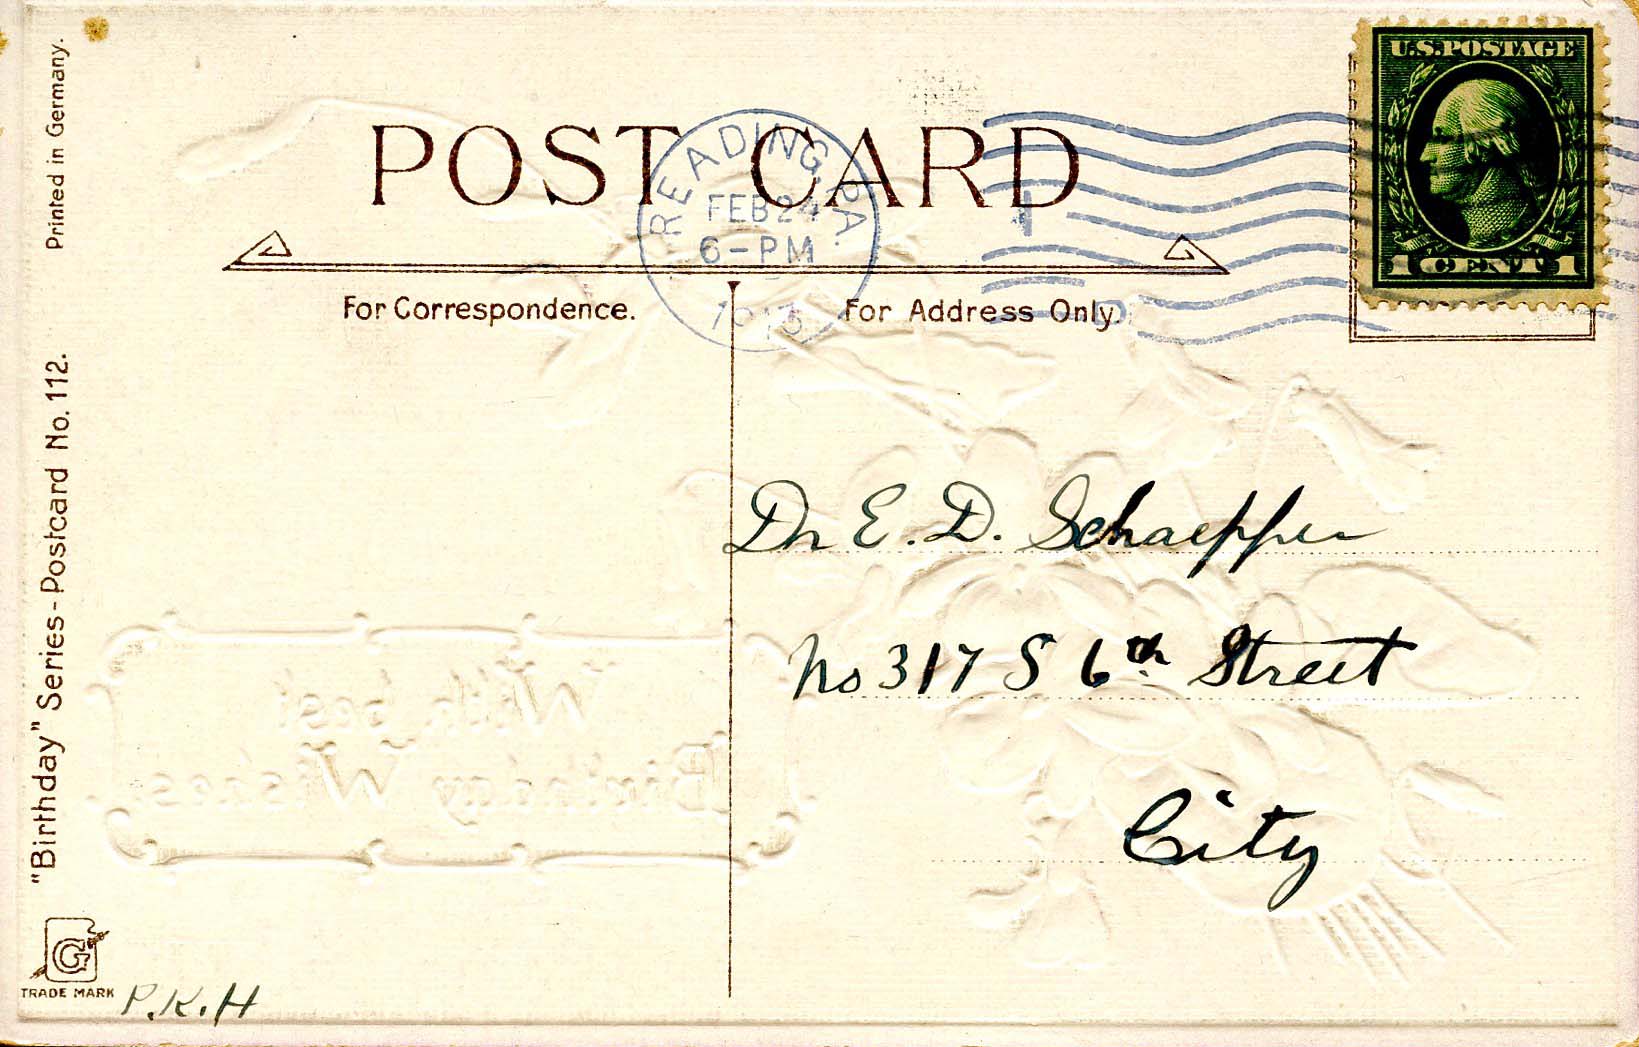 Printed in Germany.
"Birthday" Series - Postcard No. 112.
POST CARD
READING, PA.
FEB 24
6-PM
U.S. POSTAGE
1 CENT 1
For Correspondence.
For Address Only
Dr E. D. Schaeffer
No 317 S 6th Street
City
With best
Birthday Wishes.
G
TRADE MARK
P.K.H